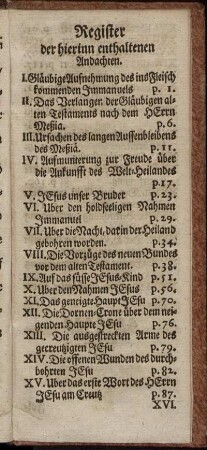 Register
der hierinn enthaltenen
Andachten.
I. Gläubige Aufnehmung des ins Fleisch
kommenden Immanuels p. 1.
II. Das Verlangen der Gläubigen al-
ten Testaments nach dem HErrn
Meßia. p. 6.
III. Ursachen des langen Aussenbleibens
des Meßiä. p. 11.
IV. Aufmunterung zur Freude über
die Ankunfft des Welt-Heilandes
p. 17.
V. JEsus unser Bruder p. 23.
VI. Uber den holdseeligen Nahmen
Immanuel p. 29.
VII. Uber die Nacht, da der Heiland
gebohren worden. p. 34.
VIII. Die Vorzüge des neuen Bundes
vor dem alten Testament. p. 38.
IX. Auf das süsse JEsus-Kind p. 51.
X. Uber den Nahmen JEsus p. 56.
XI. Das geneigte Haupt JEsu p. 70.
XII. Die Dornen-Crone über dem nei-
genden Haupte JEsu p. 76.
XIII. Die ausgestreckten Arme des
gecreutzigten JEsu p. 79.
XIV. Die offenen Wunden des durch-
bohrten JEsu p. 82.
XV. Uber das erste Wort des HErrn
JEsu am Creutz p. 87.
XVI.